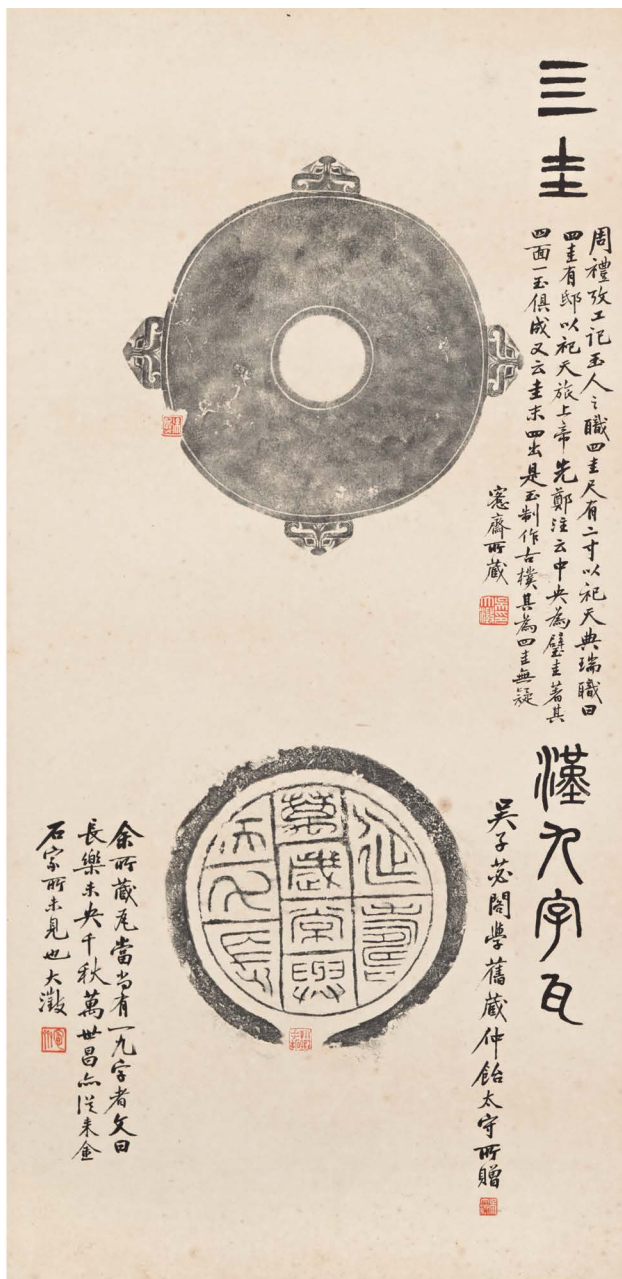 亖圭
周禮攷工記玉人之職四圭尺有二寸以祀天典瑞職曰
四圭有邸以祀天旅上帝先鄭注云中央為璧圭著其
四面一玉俱成又云圭末四出是玉制作古樸其為四圭無疑
愙齋所藏
漢九字瓦
吳子苾閣學舊藏仲飴太守所贈
延壽
萬歲常與
天久長
余所藏瓦當尚有一九字者文曰
長樂未央千秋萬世昌亦從來金
石家所未見也大澂